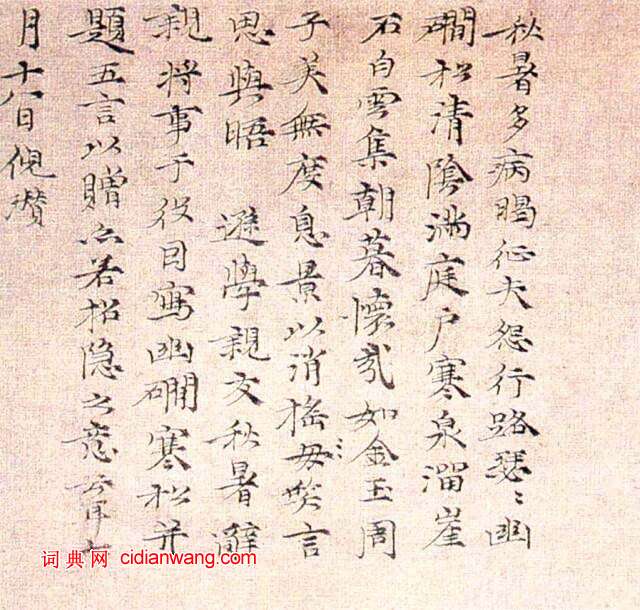 秋暑多病暍征夫怨行路瑟〻幽
磵松清陰滿庭戶寒泉溜崖
石白雲集朝暮懷哉如金玉周
子美無度息景以消搖毋笑言
思與晤 遜學親友秋暑辭
親將事于役因寫幽磵寒松并
題五言以贈亦若招隱之意云耳七
月十八日倪瓚
词典网 cidianwang.com